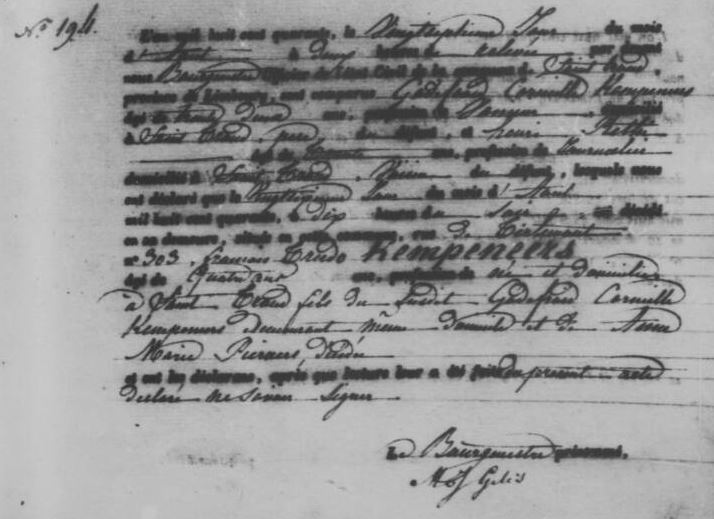 N.° 194.
L'an mil huit cent quarante, le Vingtseptieme Jour du mois
d'Aout à deux heures de relevée par devant
nous Bourgmestre Officier de l'Etat Civil de la commune de Saint Trond,
province de Limbourg, sont comparus Godefroid Corneille Kempeneers
agé de trente deux ans, profession de domicilié
à Saint Trond, père du défunt, et Henri
agé de ans, profession de Journalier
domicilié à Saint Trond, Voisin du défunt, lesquels nous
ont déclaré que le Jour du mois d'Aout
mil huit cent quarante, à dix heures du Soir, est décédé
en sa demeure, située en cette commune, rue de Tirlemont
n° 303, francois Trudo Kempeneers
agé de Quatre ans né et domicilié
à Saint Trond fils du Susdit Godefroid Corneille
Kempeneers demeurant même domicile et de Anna
Marie décédée
et ont les déclarans, après que lecture leur a été faite du présent acte
declaré ne savoir Signer
Le Bourgmestre prénommé,
Gelis